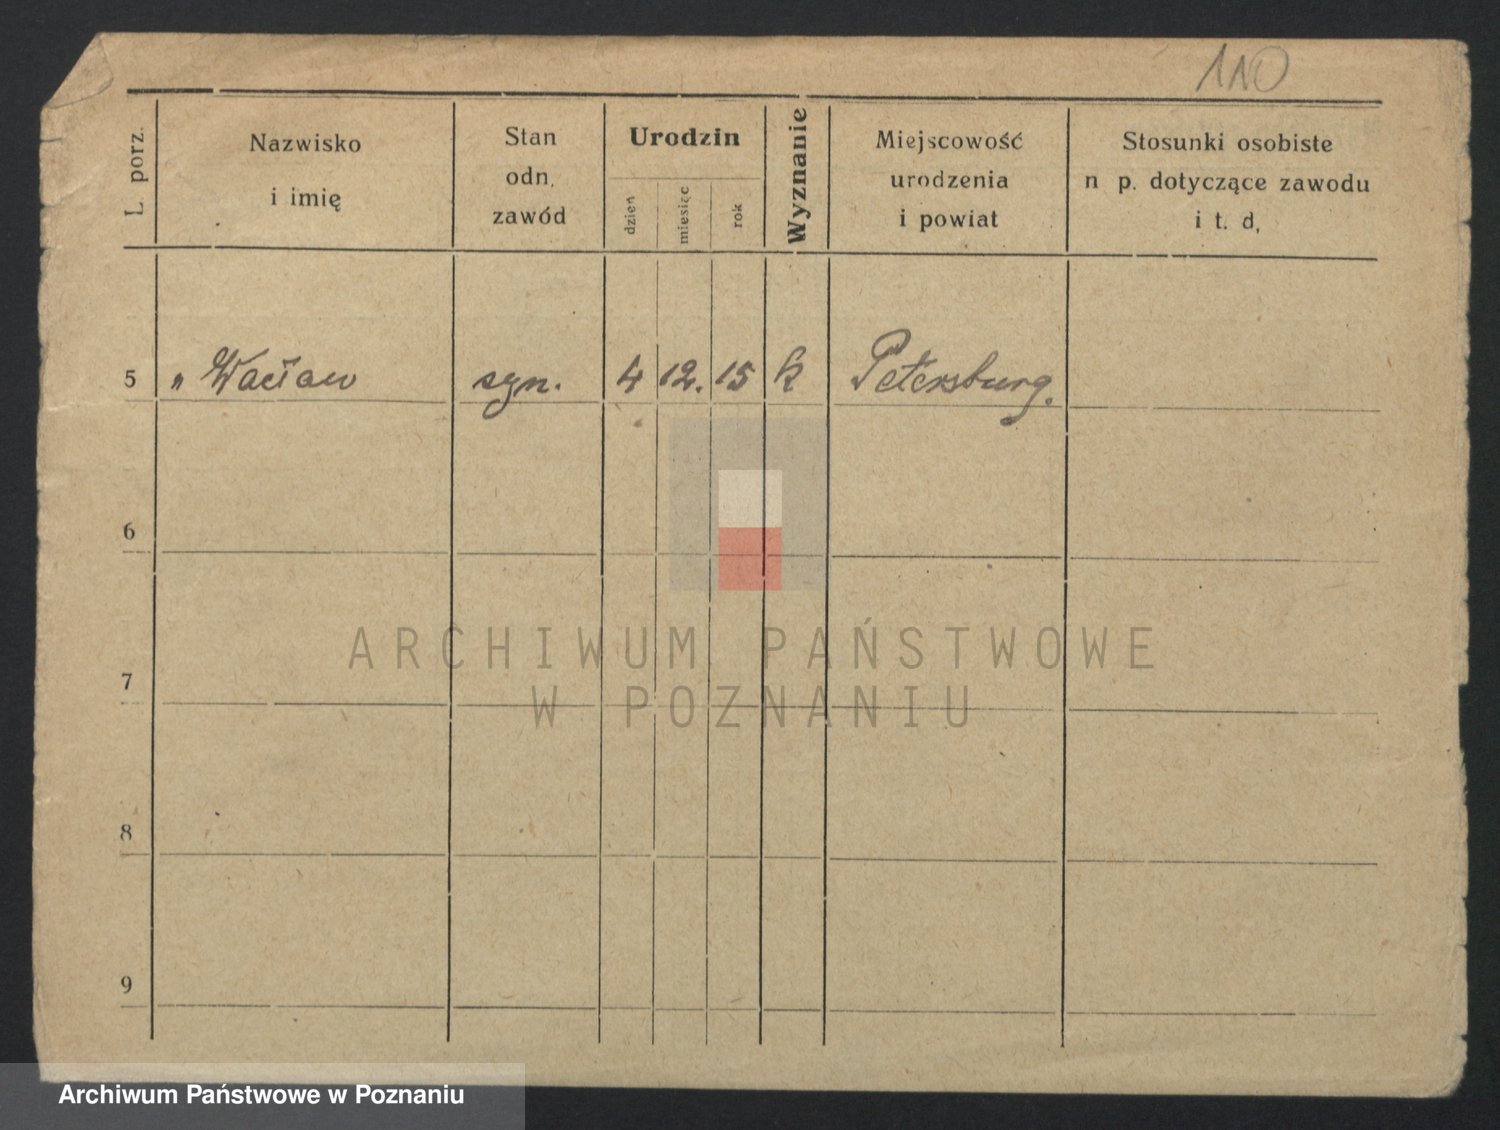 110
L. porz.
Nazwisko
i imię
Stan
odn.
zawód
Urodzin
dzień
miesiąc
rok
Wyznanie
Miejscowość
urodzenia
i powiat
Stosunki osobiste
n p. dotyczące zawodu
i t. d,
5 " Wacław syn. 4 12. 15 k Petersburg.
6
7
8
9
ARCHIWUM PAŃSTWOWE
W POZNANIU
Archiwum Państwowe w Poznaniu